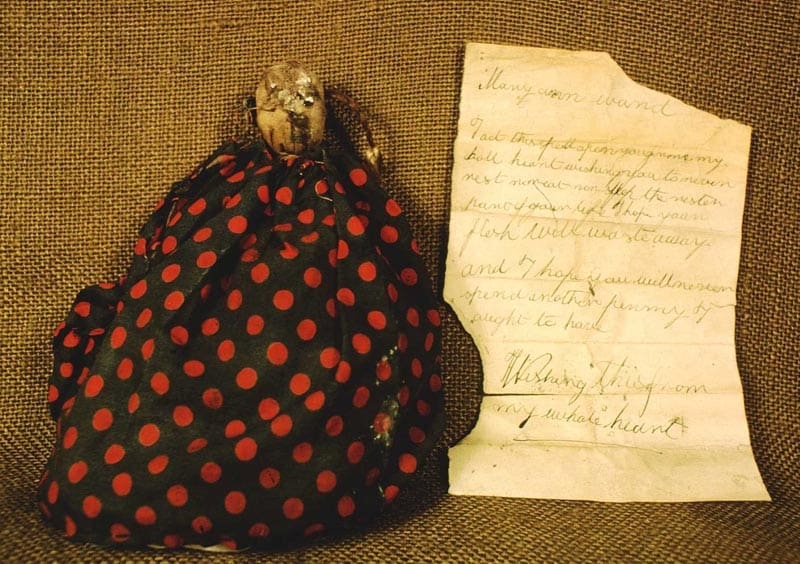 Mary ann ward
I act this spell upon you from my
holl heart wishing you to never
rest nor eat nor sleep the restern
part of your life I hope your
flesh will waste away
and I hope you will never
spend another penny I
ought to have
Wishing this from
my whole heart